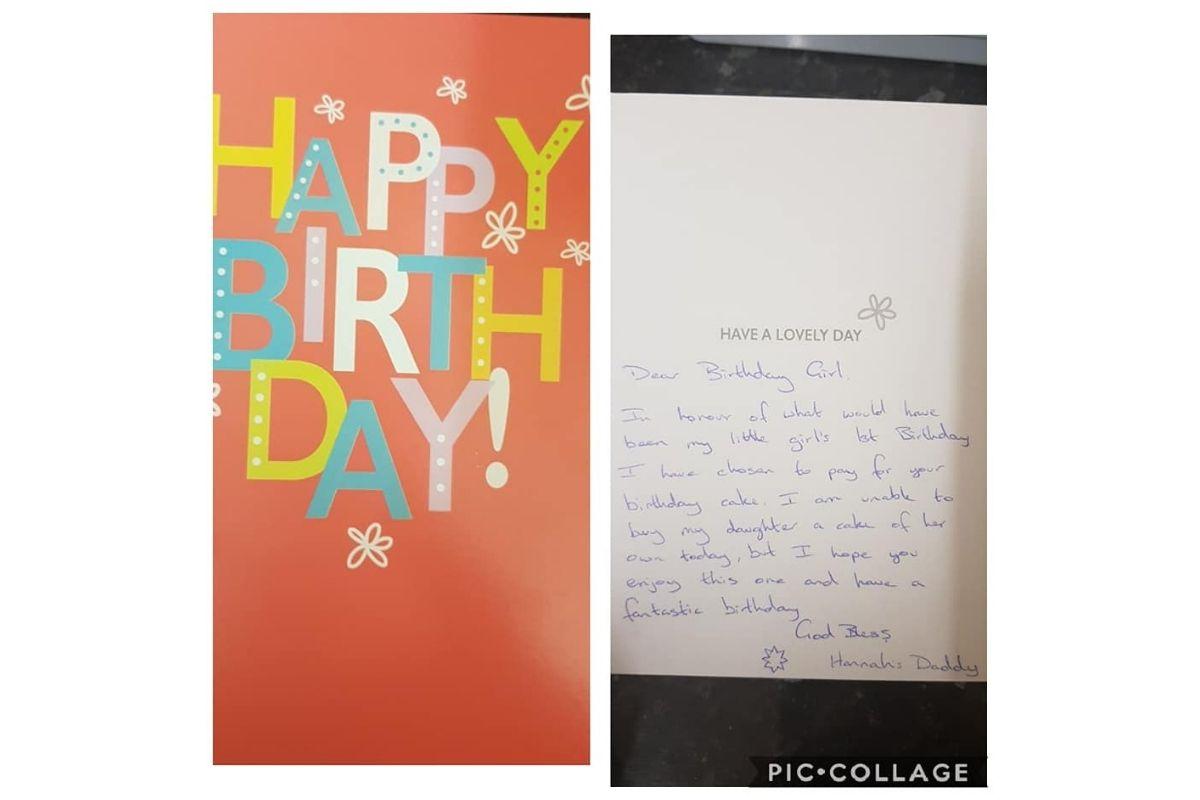 HAPPY
BIRTH
DAY!
HAVE A LOVELY DAY
Dear Birthday Girl.
In honour of what would have
been my little girl's 1st Birthday
I have chosen to pay for your
birthday cake. I am unable to
buy my daughter a cake of her
own today, but I hope you
enjoy this one and have a
fantastic birthday
God Bless
Hannah's Daddy
PIC•COLLAGE